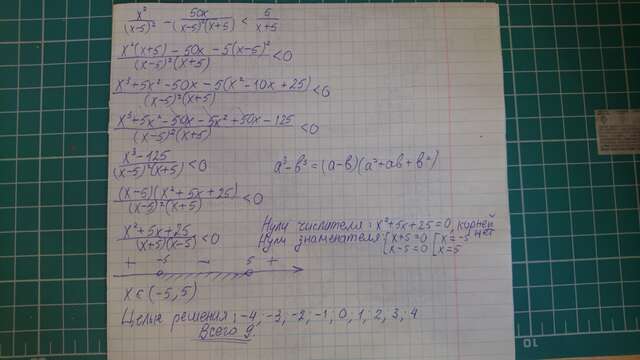 x²/(x-5)² - 50x/((x-5)²(x+5)) < 5/(x+5)
(x²(x+5) - 50x - 5(x-5)²)/((x-5)²(x+5)) < 0
(x³+5x²-50x-5(x²-10x+25))/((x-5)²(x+5)) < 0
(x³+5x²-50x-5x²+50x-125)/((x-5)²(x+5)) < 0
(x³-125)/((x-5)²(x+5)) < 0
a³-b³=(a-b)(a²+ab+b²)
((x-5)(x²+5x+25))/((x-5)²(x+5)) < 0
(x²+5x+25)/((x+5)(x-5)) < 0
Нули числителя: x²+5x+25=0, корней нет
Нули знаменателя: [x+5=0 [x=-5
[x-5=0 [x=5
+ -5 - 5 +
x∈(-5,5)
Целые решения: -4, -3, -2, -1, 0, 1, 2, 3, 4
Всего 9
10